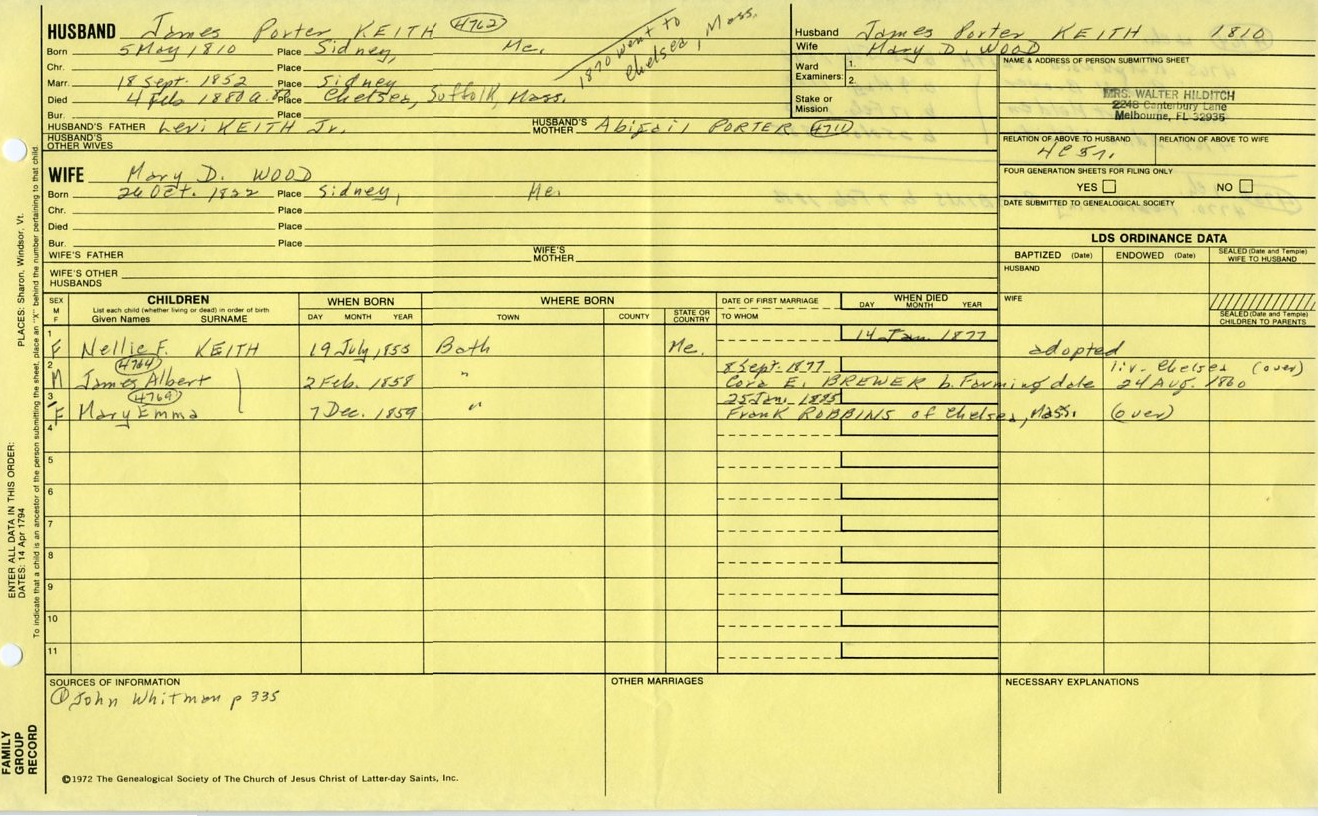 HUSBAND James Porter KEITH 4762
1870 went to Chelsea, Mass.
Born 5 May 1810 Place Sidney, Me.
Chr. Place
Marr. 18 Sept. 1852 Place Sidney
Died 4 Feb 1880 a. Place Chelsea, Suffolk, Mass.
Bur. Place
HUSBAND'S FATHER Levi KEITH Jr. HUSBAND'S MOTHER Abigail PORTER 4711
HUSBAND'S OTHER WIVES
WIFE Mary D. WOOD
Born 26 Oct. 1822 Place Sidney, Me.
Chr. Place
Died Place
Bur. Place
WIFE'S FATHER WIFE'S MOTHER
WIFE'S OTHER HUSBANDS
Husband James Porter KEITH 1810
Wife Mary D. WOOD
Ward Examiners: 1. 2.
Stake or Mission
NAME & ADDRESS OF PERSON SUBMITTING SHEET
MRS. WALTER HILDITCH
2248 Canterbury Lane
Melbourne, FL 32935
RELATION OF ABOVE TO HUSBAND RELATION OF ABOVE TO WIFE
FOUR GENERATION SHEETS FOR FILING ONLY
YES NO
DATE SUBMITTED TO GENEALOGICAL SOCIETY
LDS ORDINANCE DATA
BAPTIZED (Date) ENDOWED (Date) SEALED (Date and Temple) WIFE TO HUSBAND
HUSBAND
WIFE
SEALED (Date and Temple) CHILDREN TO PARENTS
SEX M F
CHILDREN
List each child (whether living or dead) in order of birth
Given Names SURNAME
WHEN BORN DAY MONTH YEAR
WHERE BORN TOWN COUNTY STATE OR COUNTRY
DATE OF FIRST MARRIAGE TO WHOM
WHEN DIED DAY MONTH YEAR
1 F Nellie F. KEITH 19 July 1855 Bath Me. 14 Jan. 1877 adopted
2 M 4764 James Albert 2 Feb. 1858 " 8 Sept. 1877 liv. Chelsea (over)
Cora E. BREWER b. Farmingdale 24 Aug. 1860
3 F 4769 Mary Emma 7 Dec. 1859 " 25 Jan. 1885
Frank ROBBINS of Chelsea, Mass. (over)
4
5
6
7
8
9
10
11
SOURCES OF INFORMATION
① John Whitman p 335
OTHER MARRIAGES
NECESSARY EXPLANATIONS
©1972 The Genealogical Society of The Church of Jesus Christ of Latter-day Saints, Inc.
FAMILY GROUP RECORD
ENTER ALL DATA IN THIS ORDER:
DATES: 14 Apr 1794
PLACES: Sharon, Windsor, Vt.
To indicate that a child is an ancestor of the person submitting the sheet, place an "X" behind the number pertaining to that child.